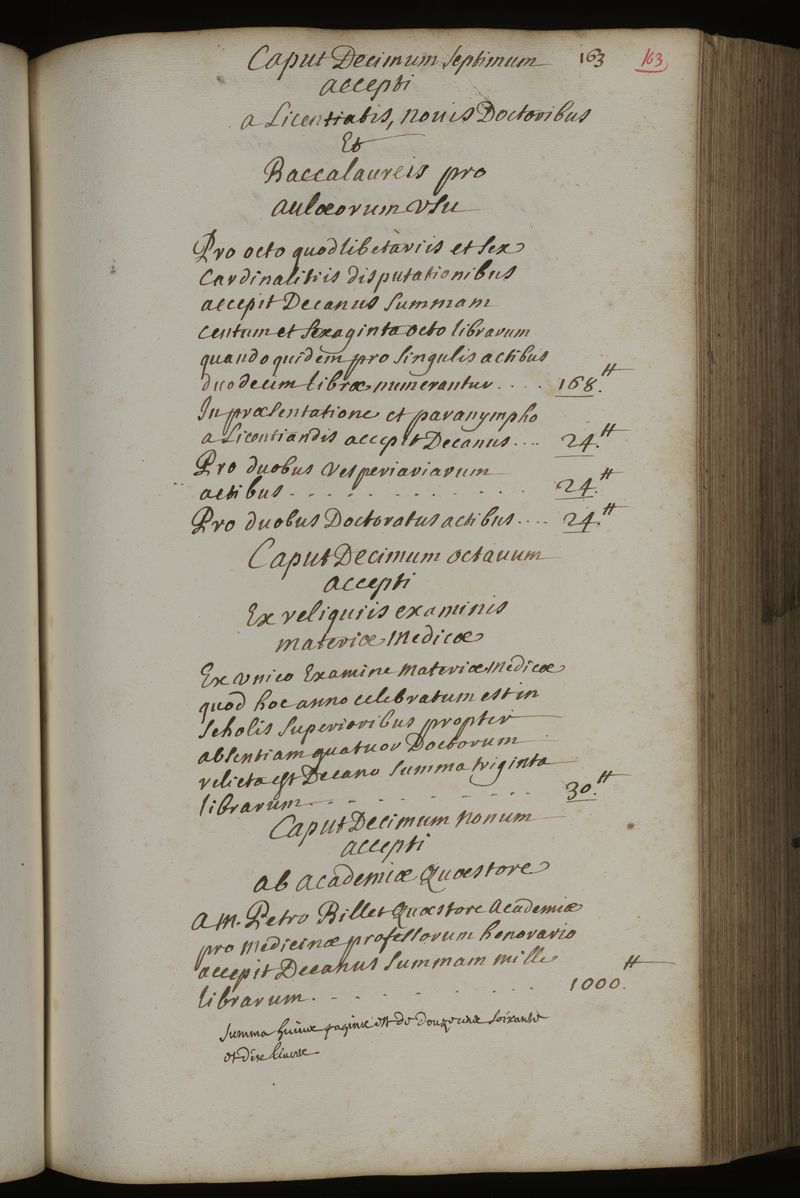 Caput Decimum septimum 163 163
accepti
a Licentiatis, novis Doctoribus
Et
Baccalaureis pro
aulæorum vsu
Pro octo quodlibetariis et sex
Cardinalitiis disputationibus
accepit Decanus Summam
centum et sexaginta octo librarum
quandoquidem pro singulis actibus
duodecim libræ numerantur .... 168.ⱡⱡ
In præsentatione et paranympho
a Licentiandis accepit Decanus .... 24.ⱡⱡ
Pro duobus Vesperiarum
actibus . . . . . . . . . . 24.ⱡⱡ
Pro duobus Doctoratus actibus .... 24.ⱡⱡ
Caput Decimum octauum
accepti
Ex reliquiis examinis
materiæ Medicæ
Ex vnico Examine Materiæ Medicæ
quod hoc anno celebratum est in
Scholis Superioribus propter
absentiam quatuor Doctorum
relicta est Decano Summa triginta
librarum . . . . . . . 30.ⱡⱡ
Caput Decimum nonum
accepti
ab academiæ Quæstore
a M. Petro Billet Quæstore Academiæ
pro Medicinæ professorum honorario
accepit Decanus Summam mille
librarum . . . . . . . 1000.ⱡⱡ
Summa huius paginæ est de douze cent soixante
et dix livres